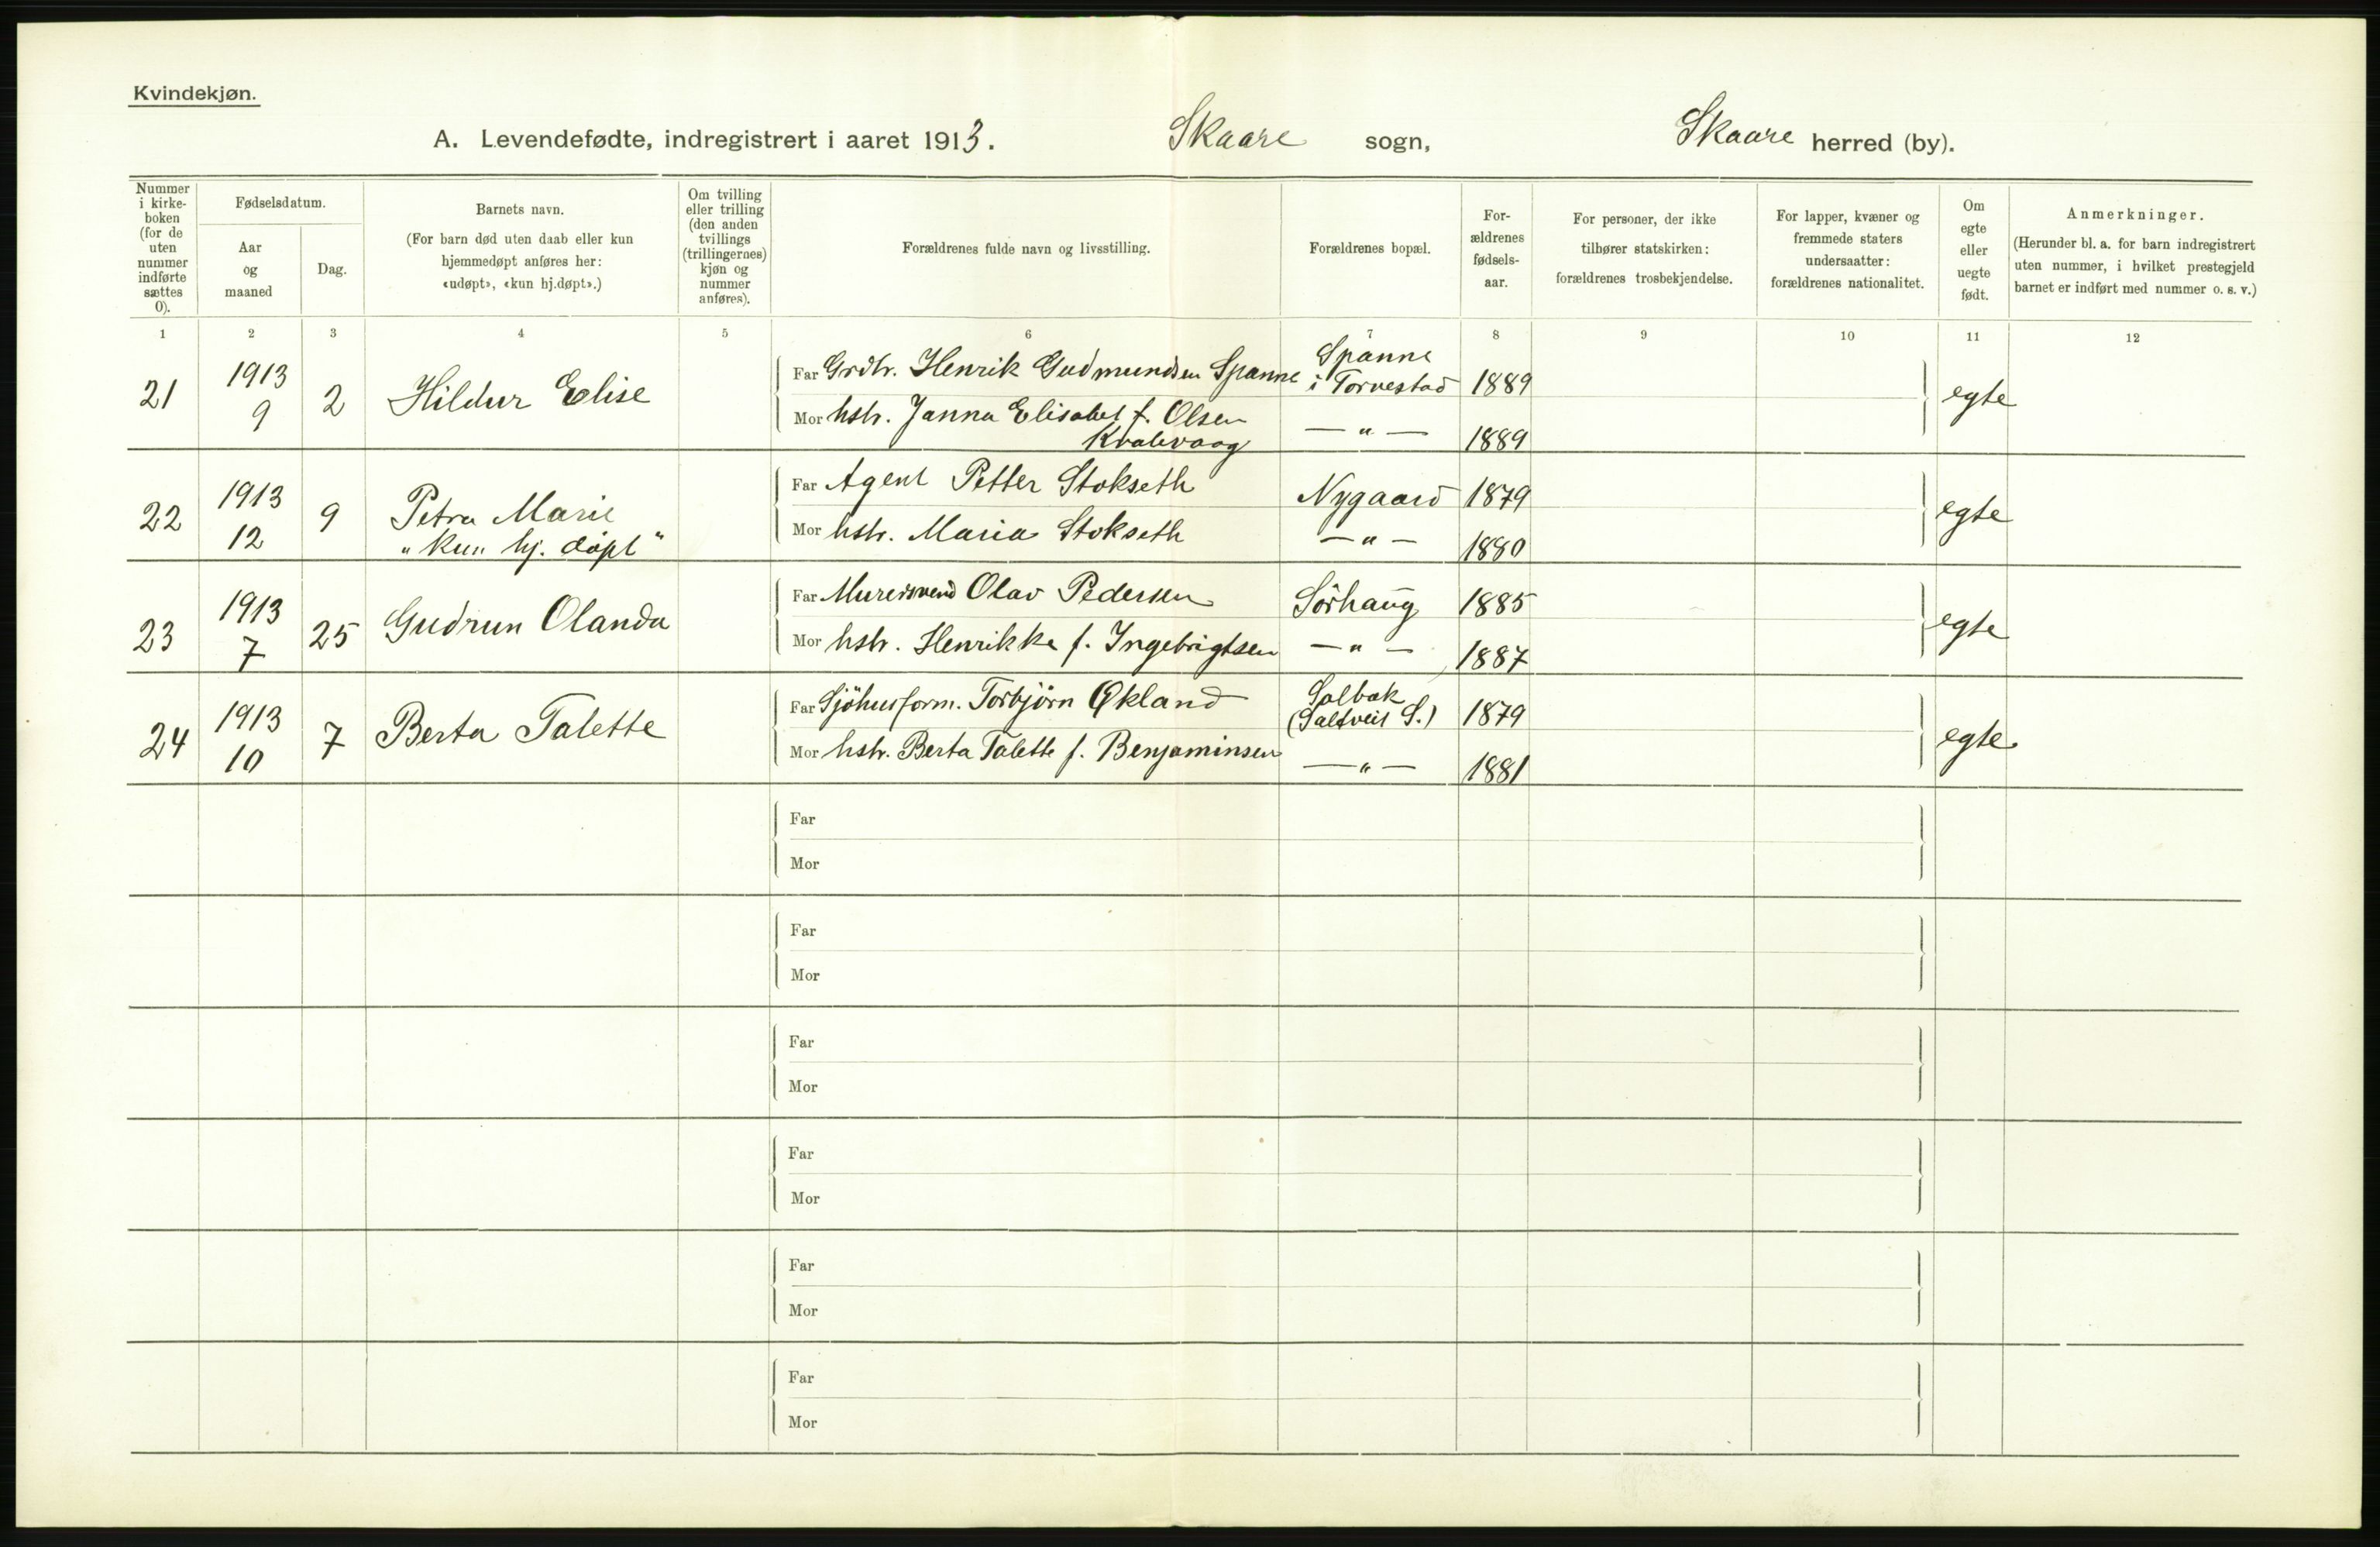 Kvindekjøn.
A. Levendefødte, indregistrert i aaret 1913. Skaare sogn, Skaare herred (by).
Nummer i kirke-boken (for de uten nummer indførte sættes 0).
Fødselsdatum.
Aar og maaned
Dag.
Barnets navn.
(For barn død uten daab eller kun hjemmedøpt anføres her: «udøpt», «kun hj.døpt».)
Om tvilling eller trilling (den anden tvillings (trillingernes) kjøn og nummer anføres).
Forældrenes fulde navn og livsstilling.
Forældrenes bopæl.
For-ældrenes fødsels-aar.
For personer, der ikke tilhører statskirken: forældrenes trosbekjendelse.
For lapper, kvæner og fremmede staters undersaatter: forældrenes nationalitet.
Om egte eller uegte født.
Anmerkninger.
(Herunder bl. a. for barn indregistrert uten nummer, i hvilket prestegjeld barnet er indført med nummer o. s. v.)
1 2 3 4 5 6 7 8 9 10 11 12
21 1913 9 2 Hildur Elise
Far Grdbr. Henrik Gudmundsen Spanne Spanne i Torvestad 1889
Mor hstr. Janna Elisabet f. Olsen Kvalevaag — " — 1889
egte
22 1913 12 9 Petra Marie
"kun hj. døpt"
Far Agent Petter Stokseth Nygaard 1879
Mor hstr. Maria Stokseth — " — 1880
egte
23 1913 7 25 Gudrun Olanda
Far Murersvend Olav Pedersen Sörhaug 1885
Mor hstr. Henrikke f. Ingebrigtsen — " — 1887
egte
24 1913 10 7 Berta Talette
Far Sjöhusform. Torbjörn Økland Solbak (Saltveit S.) 1879
Mor hstr. Berta Talette f. Benjaminsen — " — 1881
egte
Far
Mor
Far
Mor
Far
Mor
Far
Mor
Far
Mor
Far
Mor